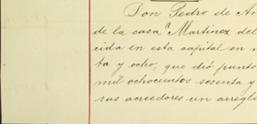 Don Pedro de A
de la casa Martinez del
cida en esta capital en
ta y ocho, que dió punto
mil ochocientos sesenta y
sus acreedores un arregl